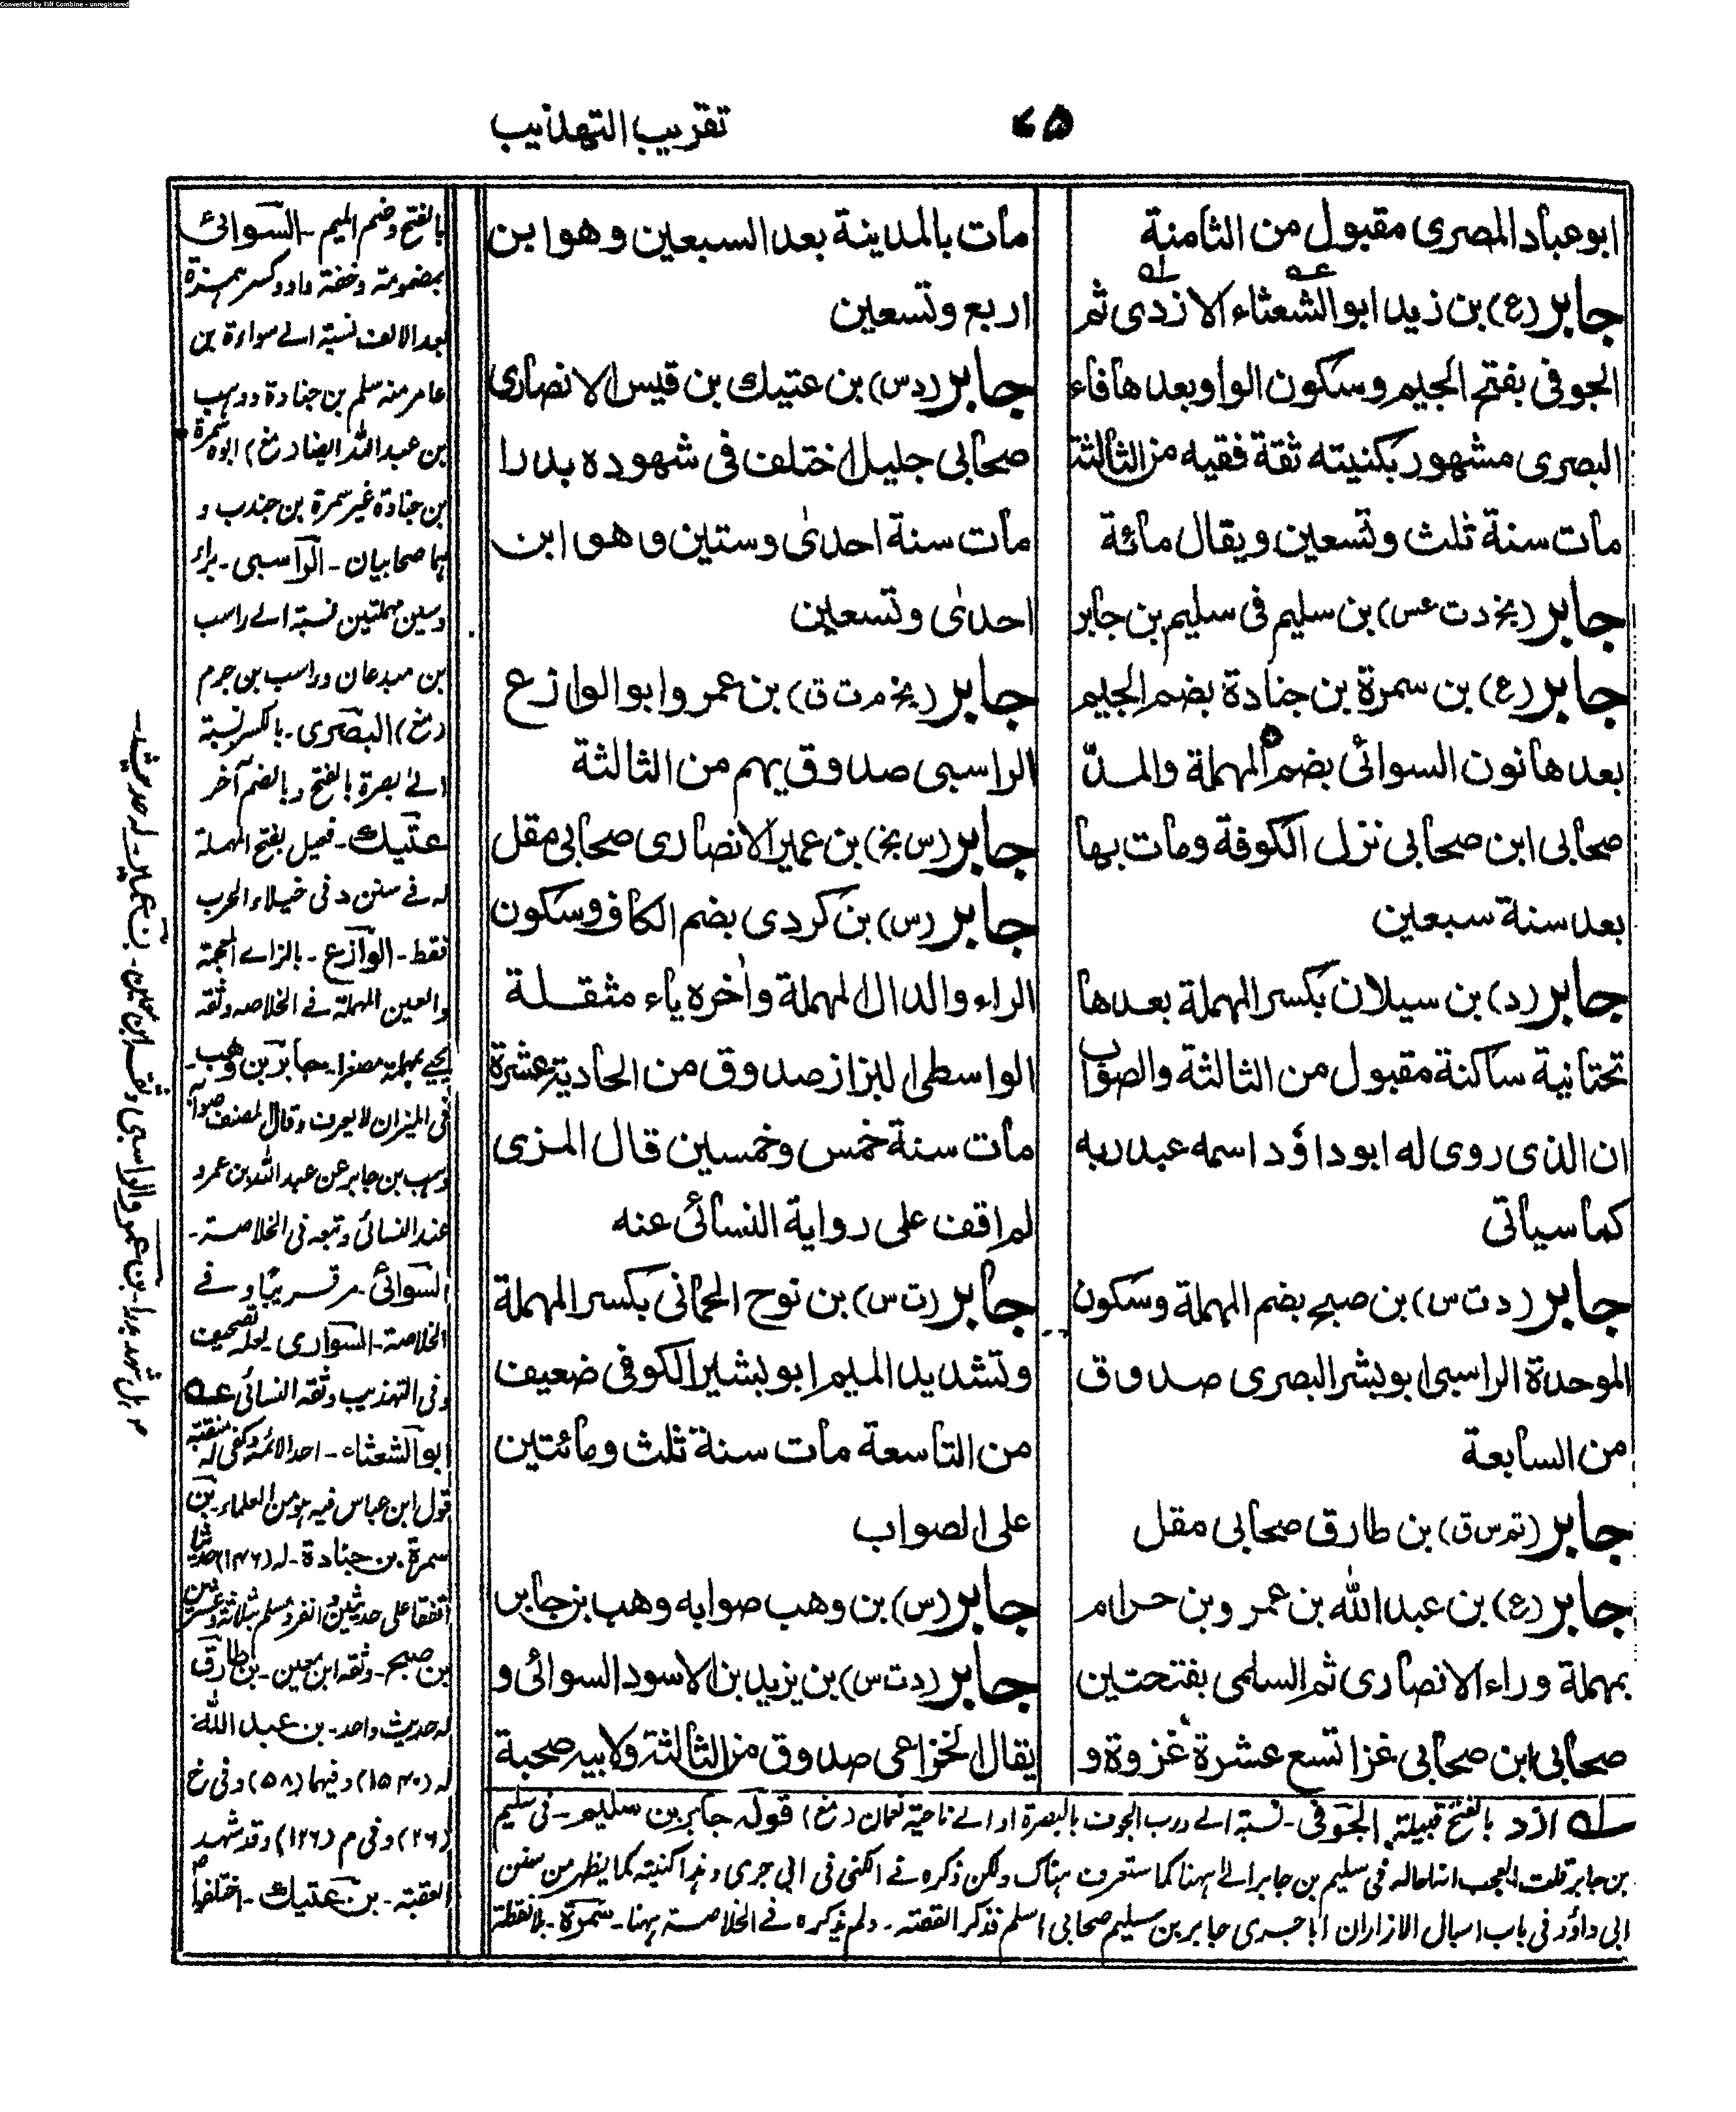 Converted by Tiff Combine - unregistered
٧٥
تقريب التهذيب
ابو عباد المصرى مقبول من الثامنة
جابر (ع) بن زيد ابو الشعثاء الازدى ثم
الجوفى بفتح الجيم وسكون الواو بعدها فاء
البصرى مشهور بكنيته ثقة فقيه من الثالثة
مات سنة ثلث وتسعين ويقال مائة
جابر (بخ د ت عس) بن سليم فى سليم بن جابر
جابر (ع) بن سمرة بن جنادة بضم الجيم
بعدها نون السوائى بضم المهملة والمدّ
صحابى ابن صحابى نزل الكوفة ومات بها
بعد سنة سبعين
جابر (د) بن سيلان بكسر المهملة بعدها
تحتانية ساكنة مقبول من الثالثة والصواب
ان الذى روى له ابو داؤد اسمه عبد ربه
كما سياتى
جابر (د ت س) بن صبح بضم المهملة وسكون
الموحدة الراسبى ابو بشر البصرى صدوق
من السابعة
جابر (تم س ق) بن طارق صحابى مقل
جابر (ع) بن عبد الله بن عمرو بن حرام
بمهملة وراء الانصارى ثم السلمى بفتحتين
صحابى ابن صحابى غزا تسع عشرة غزوة و
مات بالمدينة بعد السبعين وهو ابن
اربع وتسعين
جابر (د س) بن عتيك بن قيس الانصارى
صحابى جليل اختلف فى شهوده بدرا
مات سنة احدىٰ وستين وهو ابن
احدىٰ وتسعين
جابر (بخ م ت ق) بن عمرو ابو الوازع
الراسبى صدوق يهم من الثالثة
جابر (س بخ) بن عمير الانصارى صحابى مقل
جابر (س) بن كردى بضم الكاف وسكون
الراء والدال المهملة واخره ياء مثقلة
الواسطى البزاز صدوق من الحادية عشرة
مات سنة خمس وخمسين قال المزى
لم اقف على رواية النسائى عنه
جابر (ت س) بن نوح الحمانى بكسر المهملة
وتشديد الميم ابو بشير الكوفى ضعيف
من التاسعة مات سنة ثلث ومائتين
على الصواب
جابر (س) بن وهب صوابه وهب بن جابر
جابر (د ت س) بن يزيد بن الاسود السوائى و
يقال الخزاعى صدوق من الثالثة ولابيه صحبة
بالفتح وضم الميم - السوائى
بمضمومة وخفة واو وكسر همزة
بعد الالف نسبة الے سواءة بن
عامر منه سلم بن جنادة ووهب
بن عبد الله ايضا (مغ) ابوه سمرة
بن جنادة غير سمرة بن جندب و
هما صحابيان - الراسبى - براء
وسين مهملتين نسبة الے راسب
ابن ميدعان وراسب بن جرم
(مغ) البصرى - بالكسر نسبة
الےٰ بصرة بالفتح وبالضم آخر
عتيك - فعيل بفتح المهملة
له فے سنن د فى خيلاء الحرب
فقط - الوازع - بالزاے المعجمة
والعين المهملة فے الخلاصه وثقه
يحيے بمهملة مصغرا - جابر بن وهب -
فى الميزان لا يعرف وقال المصنف صوابه
وهب بن جابر عن عبد الله بن عمرو
عند النسائى وتبعه فى الخلاصة -
السوائى - مر قريبًا و فے
الخلاصة - السوارى لعله تصحيف
وفى التهذيب وثقه النسائى عه
ابو الشعثاء - احد الائمة وكفى له منقبة
قول ابن عباس فيه هو من العلماء - بن
سمرة بن جنادة - له (١٤٦) حديثا
اتفقا على حديثين وانفرد مسلم بثلاثة وعشرين
بن صبح - وثقه ابن معين - بن طارق
له حديث واحد - بن عبد الله
له (١٥٤٠) وفيهما (٥٨) وفى خ
(٢٦) وفى م (١٢٦) وقد شهد
العقبة - بن عتيك - اختلفوا
له ازد بالفتح قبيلة الجوفى - نسبة الے درب الجوف بالبصرة او الے ناحية نعمان (مغ) قوله جابر بن سليم - فى سليم
بن جابر قلت العجب انه احاله فى سليم بن جابر الےٰ ههنا كما ستعرف هناك ولكن ذكره فے الكنى فى ابى جرى وهذا كنيته كما يظهر من سنن
ابى داؤد فى باب اسبال الازار ان ابا جرى جابر بن سليم صحابى اسلم فذكر القصة - ولم يذكره فے الخلاصة ههنا - سمرة - بلا نقطة
هل شهد بدرا - بن عمرو الراسبى وثقه ابن معين - بن عمير - له حديث -